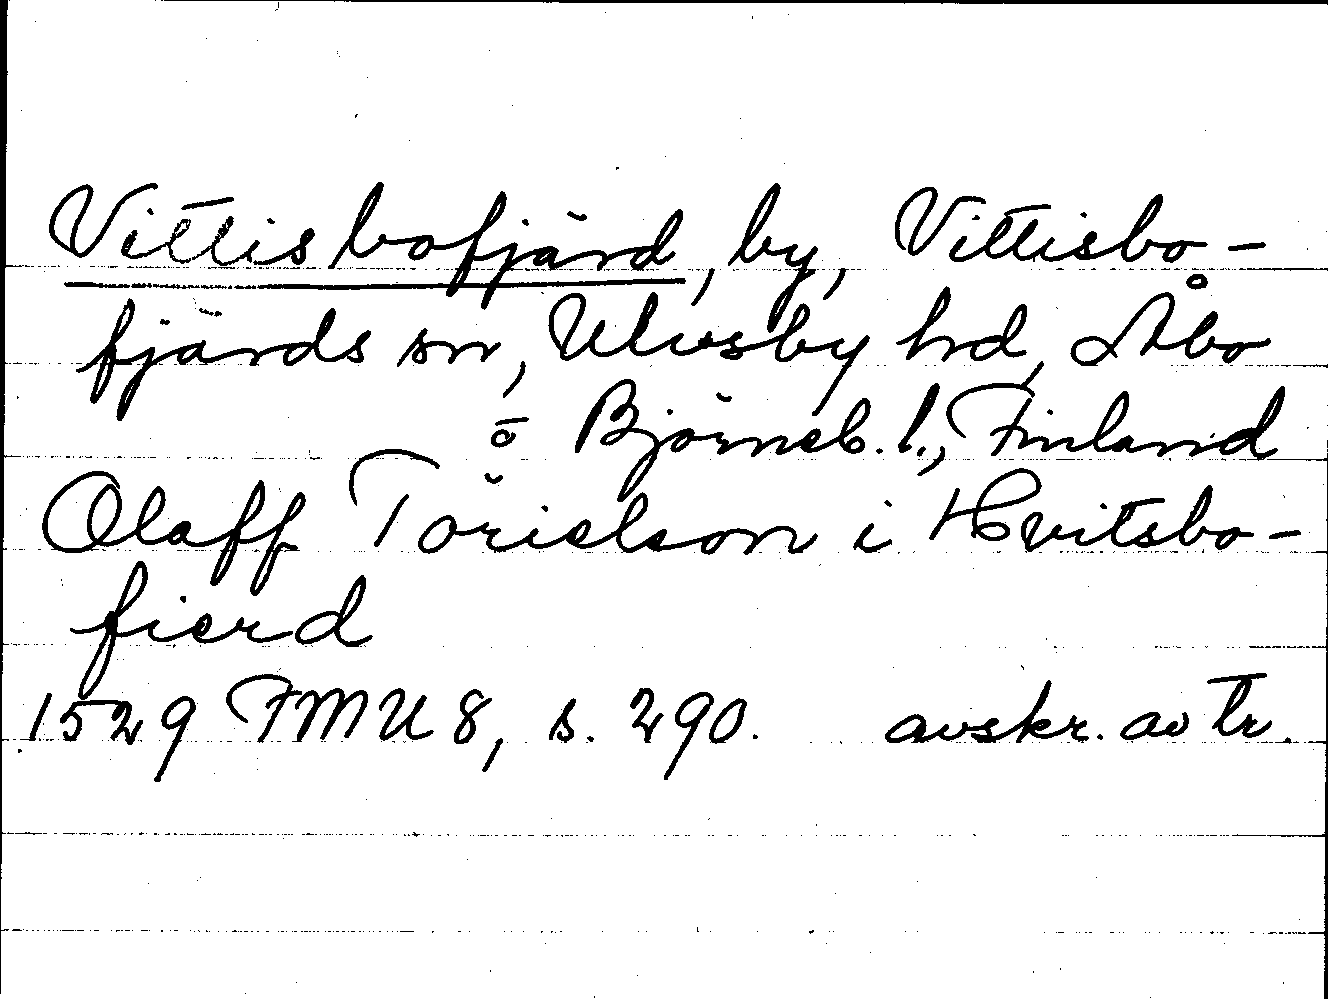 Vittisbofjärd, by, Vittisbo-
fjärds sn, Ulvsby hd, Åbo
o Björneb. l., Finland
Olaff Törielson i Hvitsbo-
fierd
1529 FMU 8, s. 290. avskr. av tr.